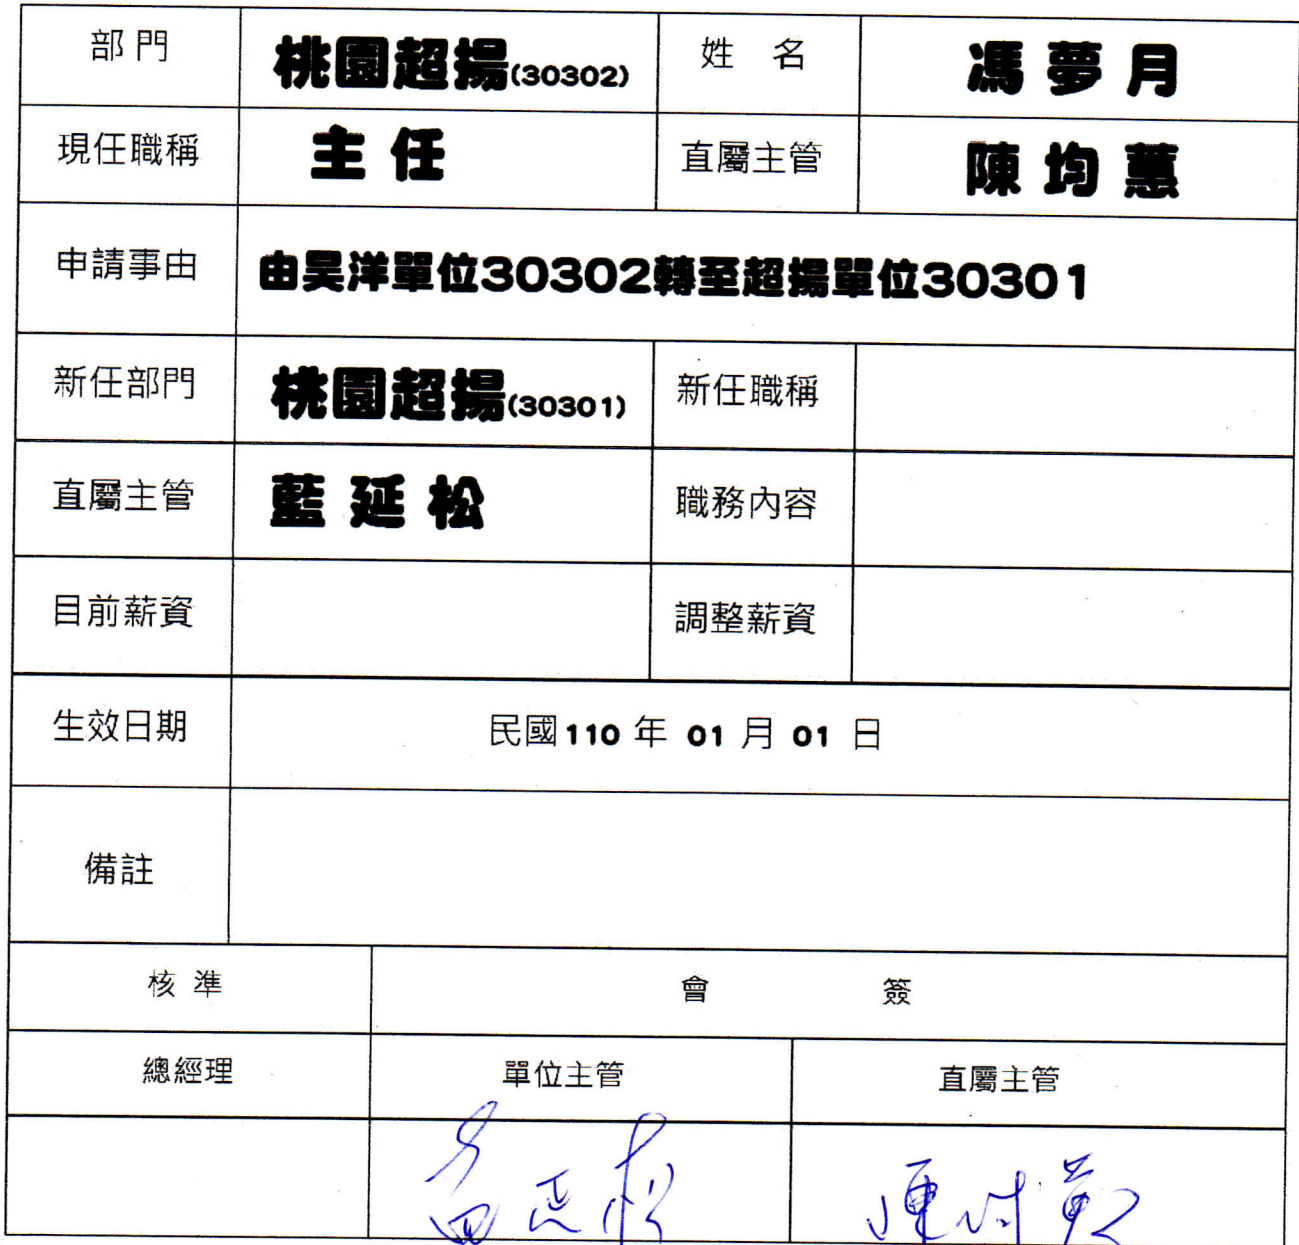 部門 桃園超揚(30302) 姓名 馮夢月
現任職稱 主任 直屬主管 陳均蕙
申請事由 由昊洋單位30302轉至超揚單位30301
新任部門 桃園超揚(30301) 新任職稱
直屬主管 藍延松 職務內容
目前薪資 調整薪資
生效日期 民國110年01月01日
備註
核準 會簽
總經理 單位主管 直屬主管